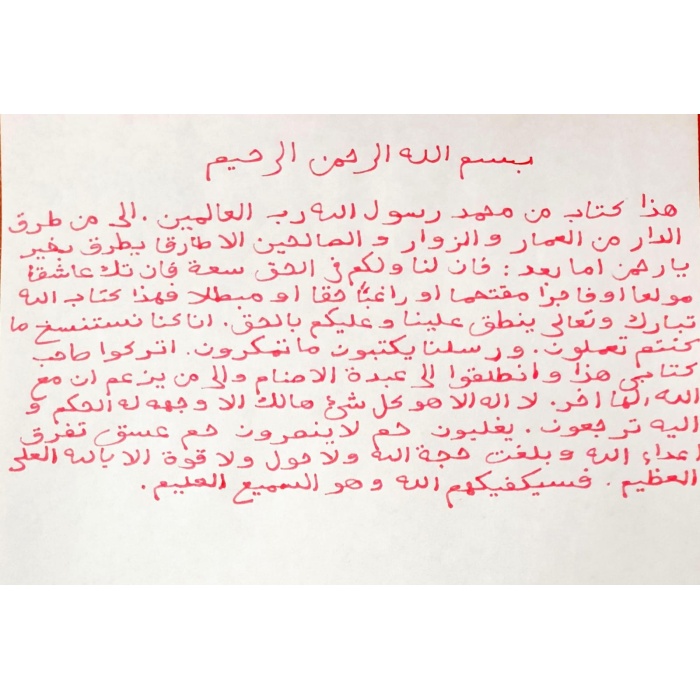 بسم الله الرحمن الرحيم
هذا كتاب من محمد رسول الله رب العالمين . الى من طرق
الدار من العمار والزوار والصالحين الا طارقا يطرق بخير
يا رحمن اما بعد : فان لنا ولكم في الحق سعة فان تك عاشقا
مولعا او فاجرا مقتحما او راغبًا حقا او مبطلا فهذا كتاب الله
تبارك وتعالى ينطق علينا وعليكم بالحق . انا كنا نستنسخ ما
كنتم تعملون . ورسلنا يكتبون ما تمكرون . اتركوا صاحب
كتابي هذا وانطلقوا الى عبدة الاصنام والى من يزعم ان مع
الله الها اخر . لا اله الا هو كل شئ هالك الا وجهه له الحكم و
اليه ترجعون . يغلبون حم لا ينصرون حم عسق تفرق
اعداء الله وبلغت حجة الله ولا حول ولا قوة الا بالله العلي
العظيم . فسيكفيكهم الله وهو السميع العليم .